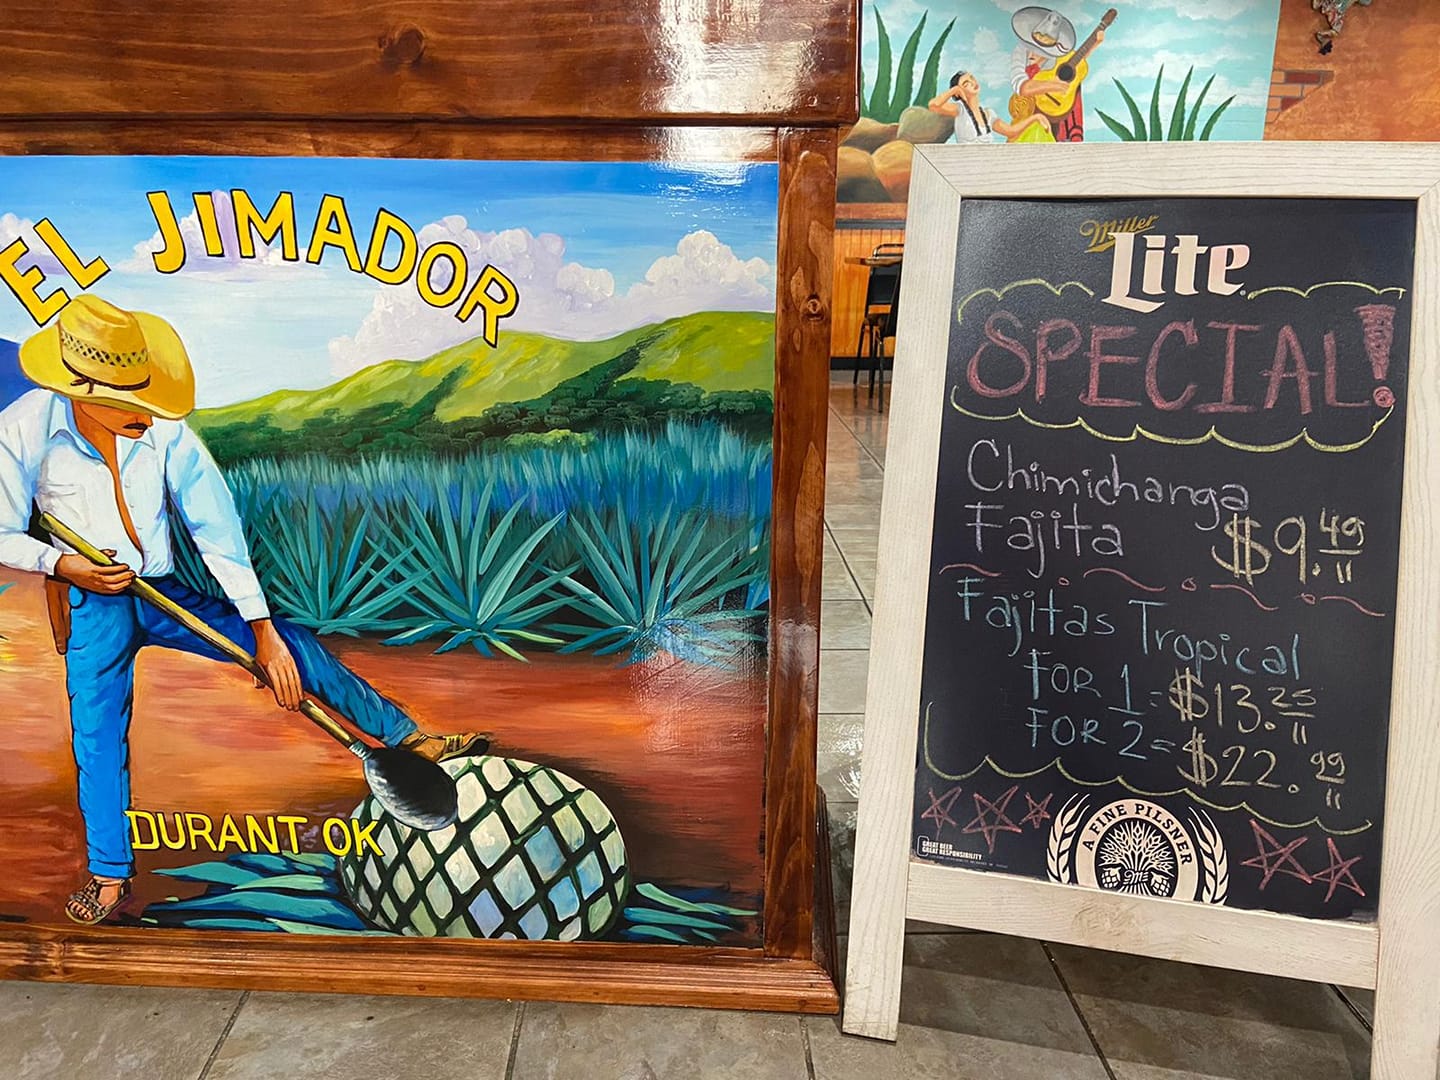 EL JIMADOR
DURANT OK
Miller
Lite
SPECIAL!
Chimichanga
Fajita $9.49
Fajitas Tropical
FOR 1 = $13.25
FOR 2 = $22.99
GREAT BEER
GREAT RESPONSIBILITY
A FINE PILSNER